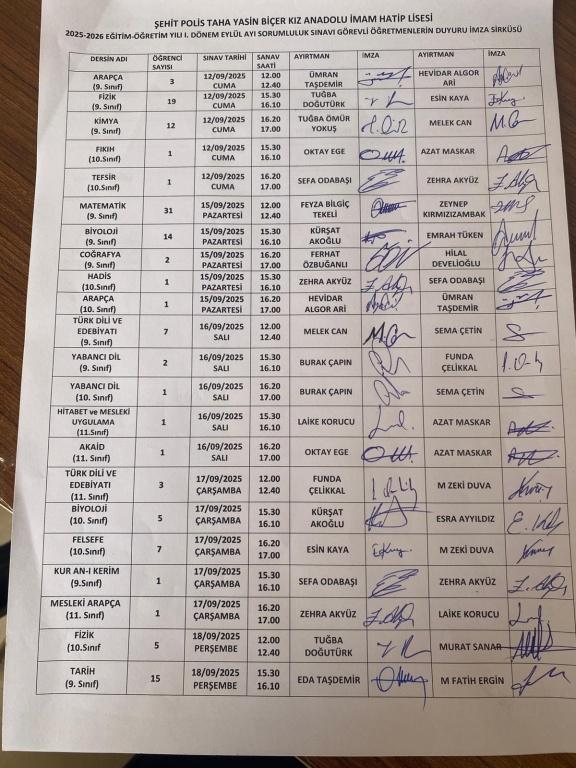 ŞEHİT POLİS TAHA YASİN BİÇER KIZ ANADOLU İMAM HATİP LİSESİ
2025-2026 EĞİTİM-ÖĞRETİM YILI I. DÖNEM EYLÜL AYI SORUMLULUK SINAVI GÖREVLİ ÖĞRETMENLERİN DUYURU İMZA SİRKÜSU
DERSİN ADI ÖĞRENCİ SAYISI SINAV TARİHİ SANAV SAATİ AYIRTMAN İMZA AYIRTMAN İMZA
ARAPÇA (9. Sınıf) 3 12/09/2025 CUMA 12.00 12.40 ÜMRAN TAŞDEMİR HEVİDAR ALGOR ARİ
FİZİK (9. Sınıf) 19 12/09/2025 CUMA 15.30 16.10 TUĞBA DOĞUTÜRK ESİN KAYA
KİMYA (9. Sınıf) 12 12/09/2025 CUMA 16.20 17.00 TUĞBA ÖMÜR YOKUŞ MELEK CAN
FIKIH (10.Sınıf) 1 12/09/2025 CUMA 15.30 16.10 OKTAY EGE AZAT MASKAR
TEFSİR (10.Sınıf) 1 12/09/2025 CUMA 16.20 17.00 SEFA ODABAŞI ZEHRA AKYÜZ
MATEMATİK (9. Sınıf) 31 15/09/2025 PAZARTESİ 12.00 12.40 FEYZA BİLGİÇ TEKELİ ZEYNEP KIRMIZIZAMBAK
BİYOLOJİ (9. Sınıf) 14 15/09/2025 PAZARTESİ 15.30 16.10 KÜRŞAT AKOĞLU EMRAH TÜKEN
COĞRAFYA (9. Sınıf) 2 15/09/2025 PAZARTESİ 16.20 17.00 FERHAT ÖZBUĞANLI HİLAL DEVELİOĞLU
HADİS (10.Sınıf) 1 15/09/2025 PAZARTESİ 15.30 16.10 ZEHRA AKYÜZ SEFA ODABAŞI
ARAPÇA (10. Sınıf) 1 15/09/2025 PAZARTESİ 16.20 17.00 HEVİDAR ALGOR ARİ ÜMRAN TAŞDEMİR
TÜRK DİLİ VE EDEBİYATI (9. Sınıf) 7 16/09/2025 SALI 12.00 12.40 MELEK CAN SEMA ÇETİN
YABANCI DİL (9. Sınıf) 2 16/09/2025 SALI 15.30 16.10 BURAK ÇAPIN FUNDA ÇELİKKAL
YABANCI DİL (10. Sınıf) 1 16/09/2025 SALI 16.20 17.00 BURAK ÇAPIN SEMA ÇETİN
HİTABET ve MESLEKİ UYGULAMA (11.Sınıf) 1 16/09/2025 SALI 15.30 16.10 LAİKE KORUCU AZAT MASKAR
AKAİD (11. Sınıf) 1 16/09/2025 SALI 16.20 17.00 OKTAY EGE AZAT MASKAR
TÜRK DİLİ VE EDEBİYATI (11. Sınıf) 3 17/09/2025 ÇARŞAMBA 12.00 12.40 FUNDA ÇELİKKAL M ZEKİ DUVA
BİYOLOJİ (10. Sınıf) 5 17/09/2025 ÇARŞAMBA 15.30 16.10 KÜRŞAT AKOĞLU ESRA AYYILDIZ
FELSEFE (10.Sınıf) 7 17/09/2025 ÇARŞAMBA 16.20 17.00 ESİN KAYA M ZEKİ DUVA
KUR AN-I KERİM (9.Sınıf) 1 17/09/2025 ÇARŞAMBA 15.30 16.10 SEFA ODABAŞI ZEHRA AKYÜZ
MESLEKİ ARAPÇA (11. Sınıf) 1 17/09/2025 ÇARŞAMBA 16.20 17.00 ZEHRA AKYÜZ LAİKE KORUCU
FİZİK (10.Sınıf 5 18/09/2025 PERŞEMBE 12.00 12.40 TUĞBA DOĞUTÜRK MURAT SANAR
TARİH (9. Sınıf) 15 18/09/2025 PERŞEMBE 15.30 16.10 EDA TAŞDEMİR M FATİH ERGİN